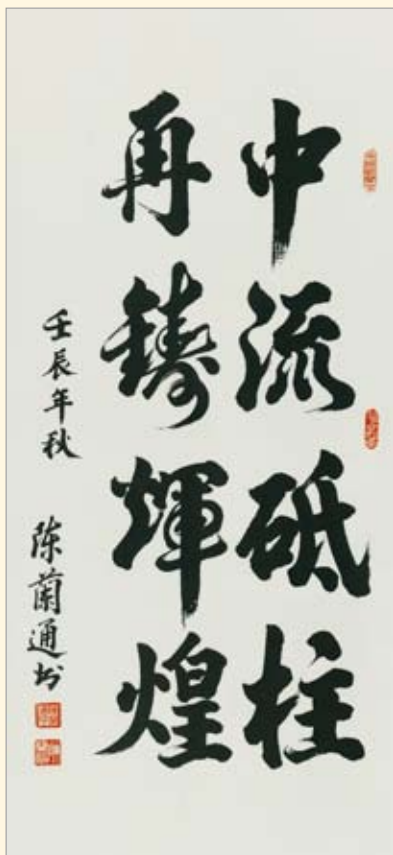 中流砥柱
再鑄輝煌
壬辰年秋
陈蘭通